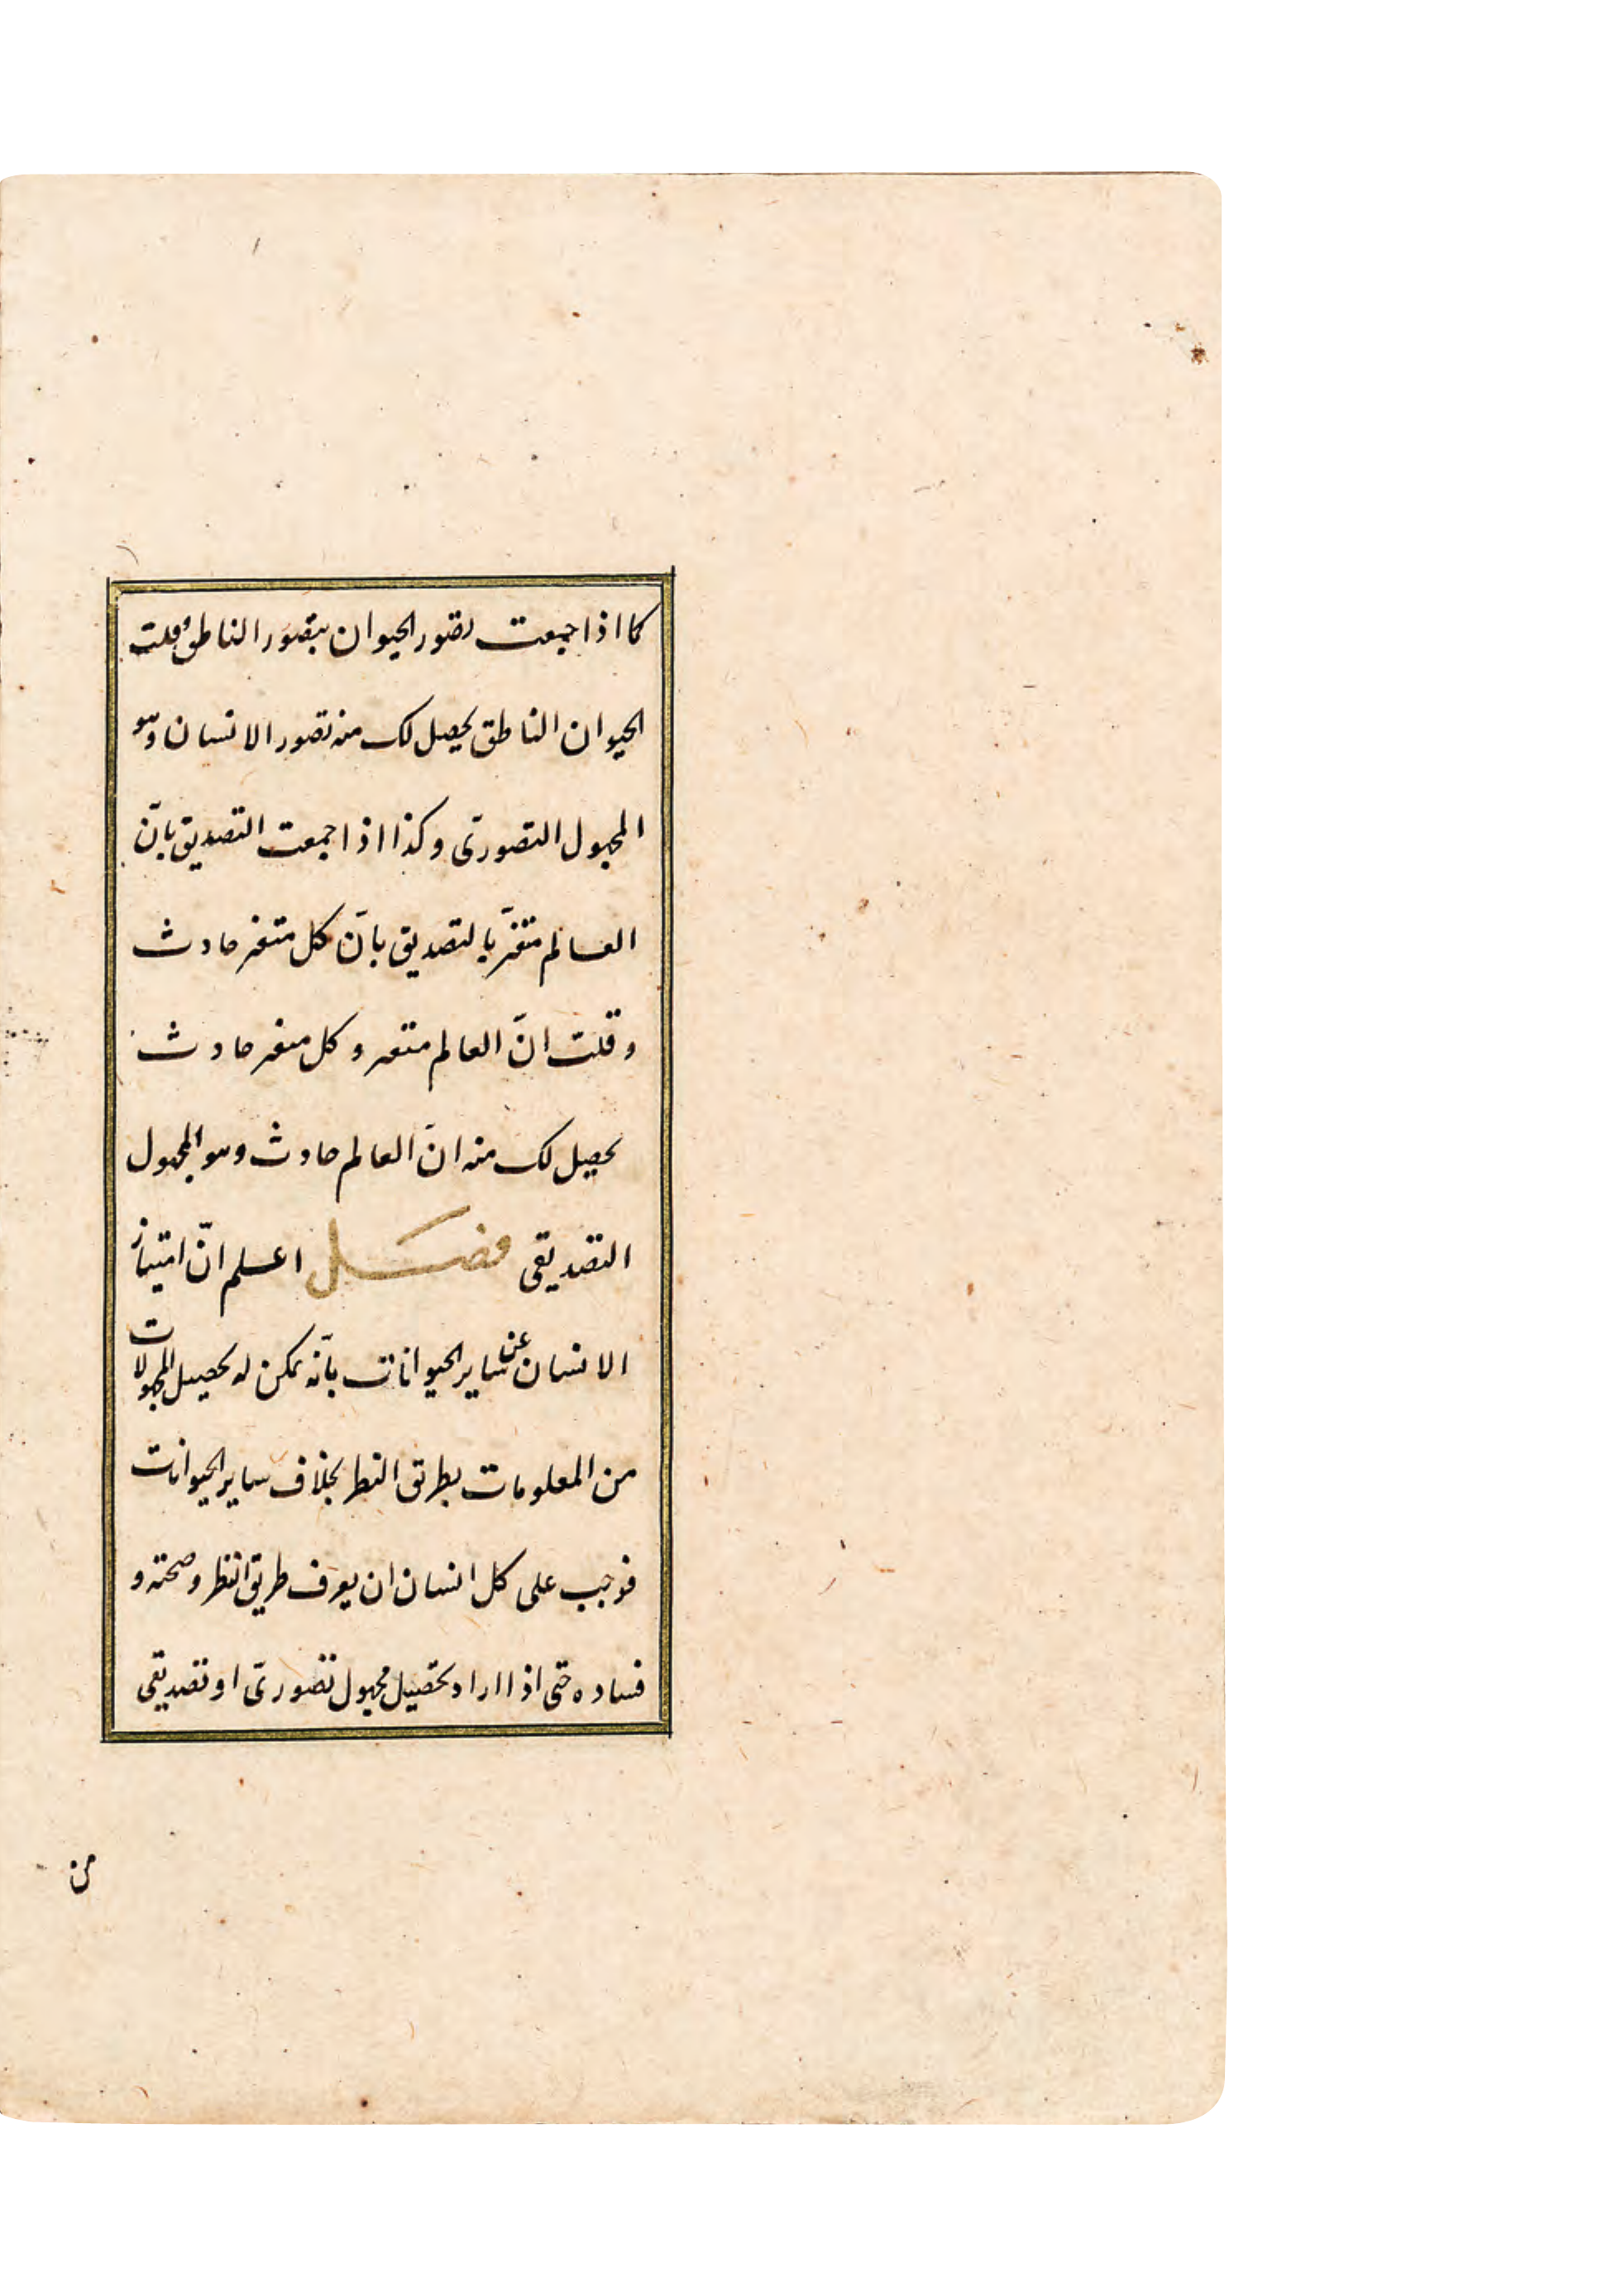 كما اذا جمعت تصور الحيوان بتصور الناطق وقلت
الحيوان الناطق يحصل لك منه تصور الانسان وهو
المجهول التصوریّ وكذا اذا جمعت التصديق بانّ
العالم متغيّر بالتصديق بانّ كل متغير حادث
و قلت انّ العالم متغير وكل متغير حادث
يحصل لك منه انّ العالم حادث وهو المجهول
التصديقى فصل اعلم انّ امتياز
الانسان عن ساير الحيوانات بانّه يمكن له تحصيل المجهولات
من المعلومات بطريق النظر بخلاف ساير الحيوانات
فوجب على كل انسان ان يعرف طريق النظر وصحته و
فساده حتى اذا اراد تحصيل مجهول تصوریّ او تصديقى
من